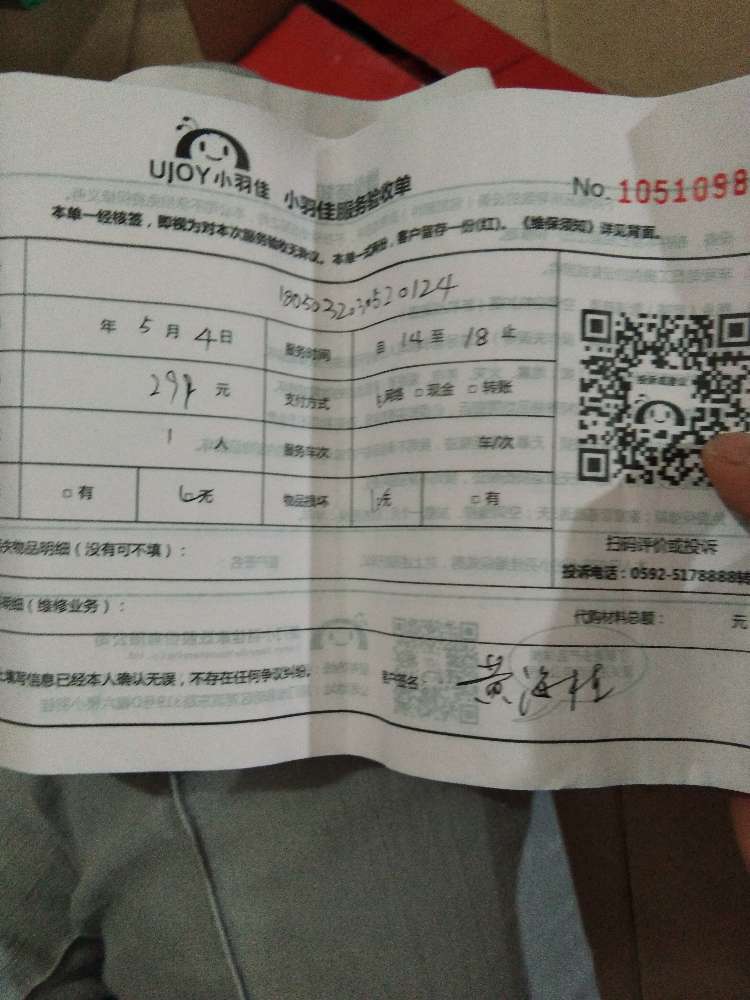 UJOY小羽佳 小羽佳服务验收单
No. 1051098
本单一经核签，即视为对本次服务验收无异议。本单一式两份，客户留存一份(红)。《维保须知》详见背面。
年 5 月 4 日 服务时间 自 14 至 18 止
元 支付方式 网络 □ 现金 □ 转账
1 人 服务车次 车/次
□ 有 无 物品损坏 无 □ 有
物品明细（没有可不填）：
扫码评价或投诉
投诉电话：0592-5178888转
明细（维修业务）：
代购材料总额： 元
填写信息已经本人确认无误，不存在任何争议纠纷。 客户签名： 黄海桂